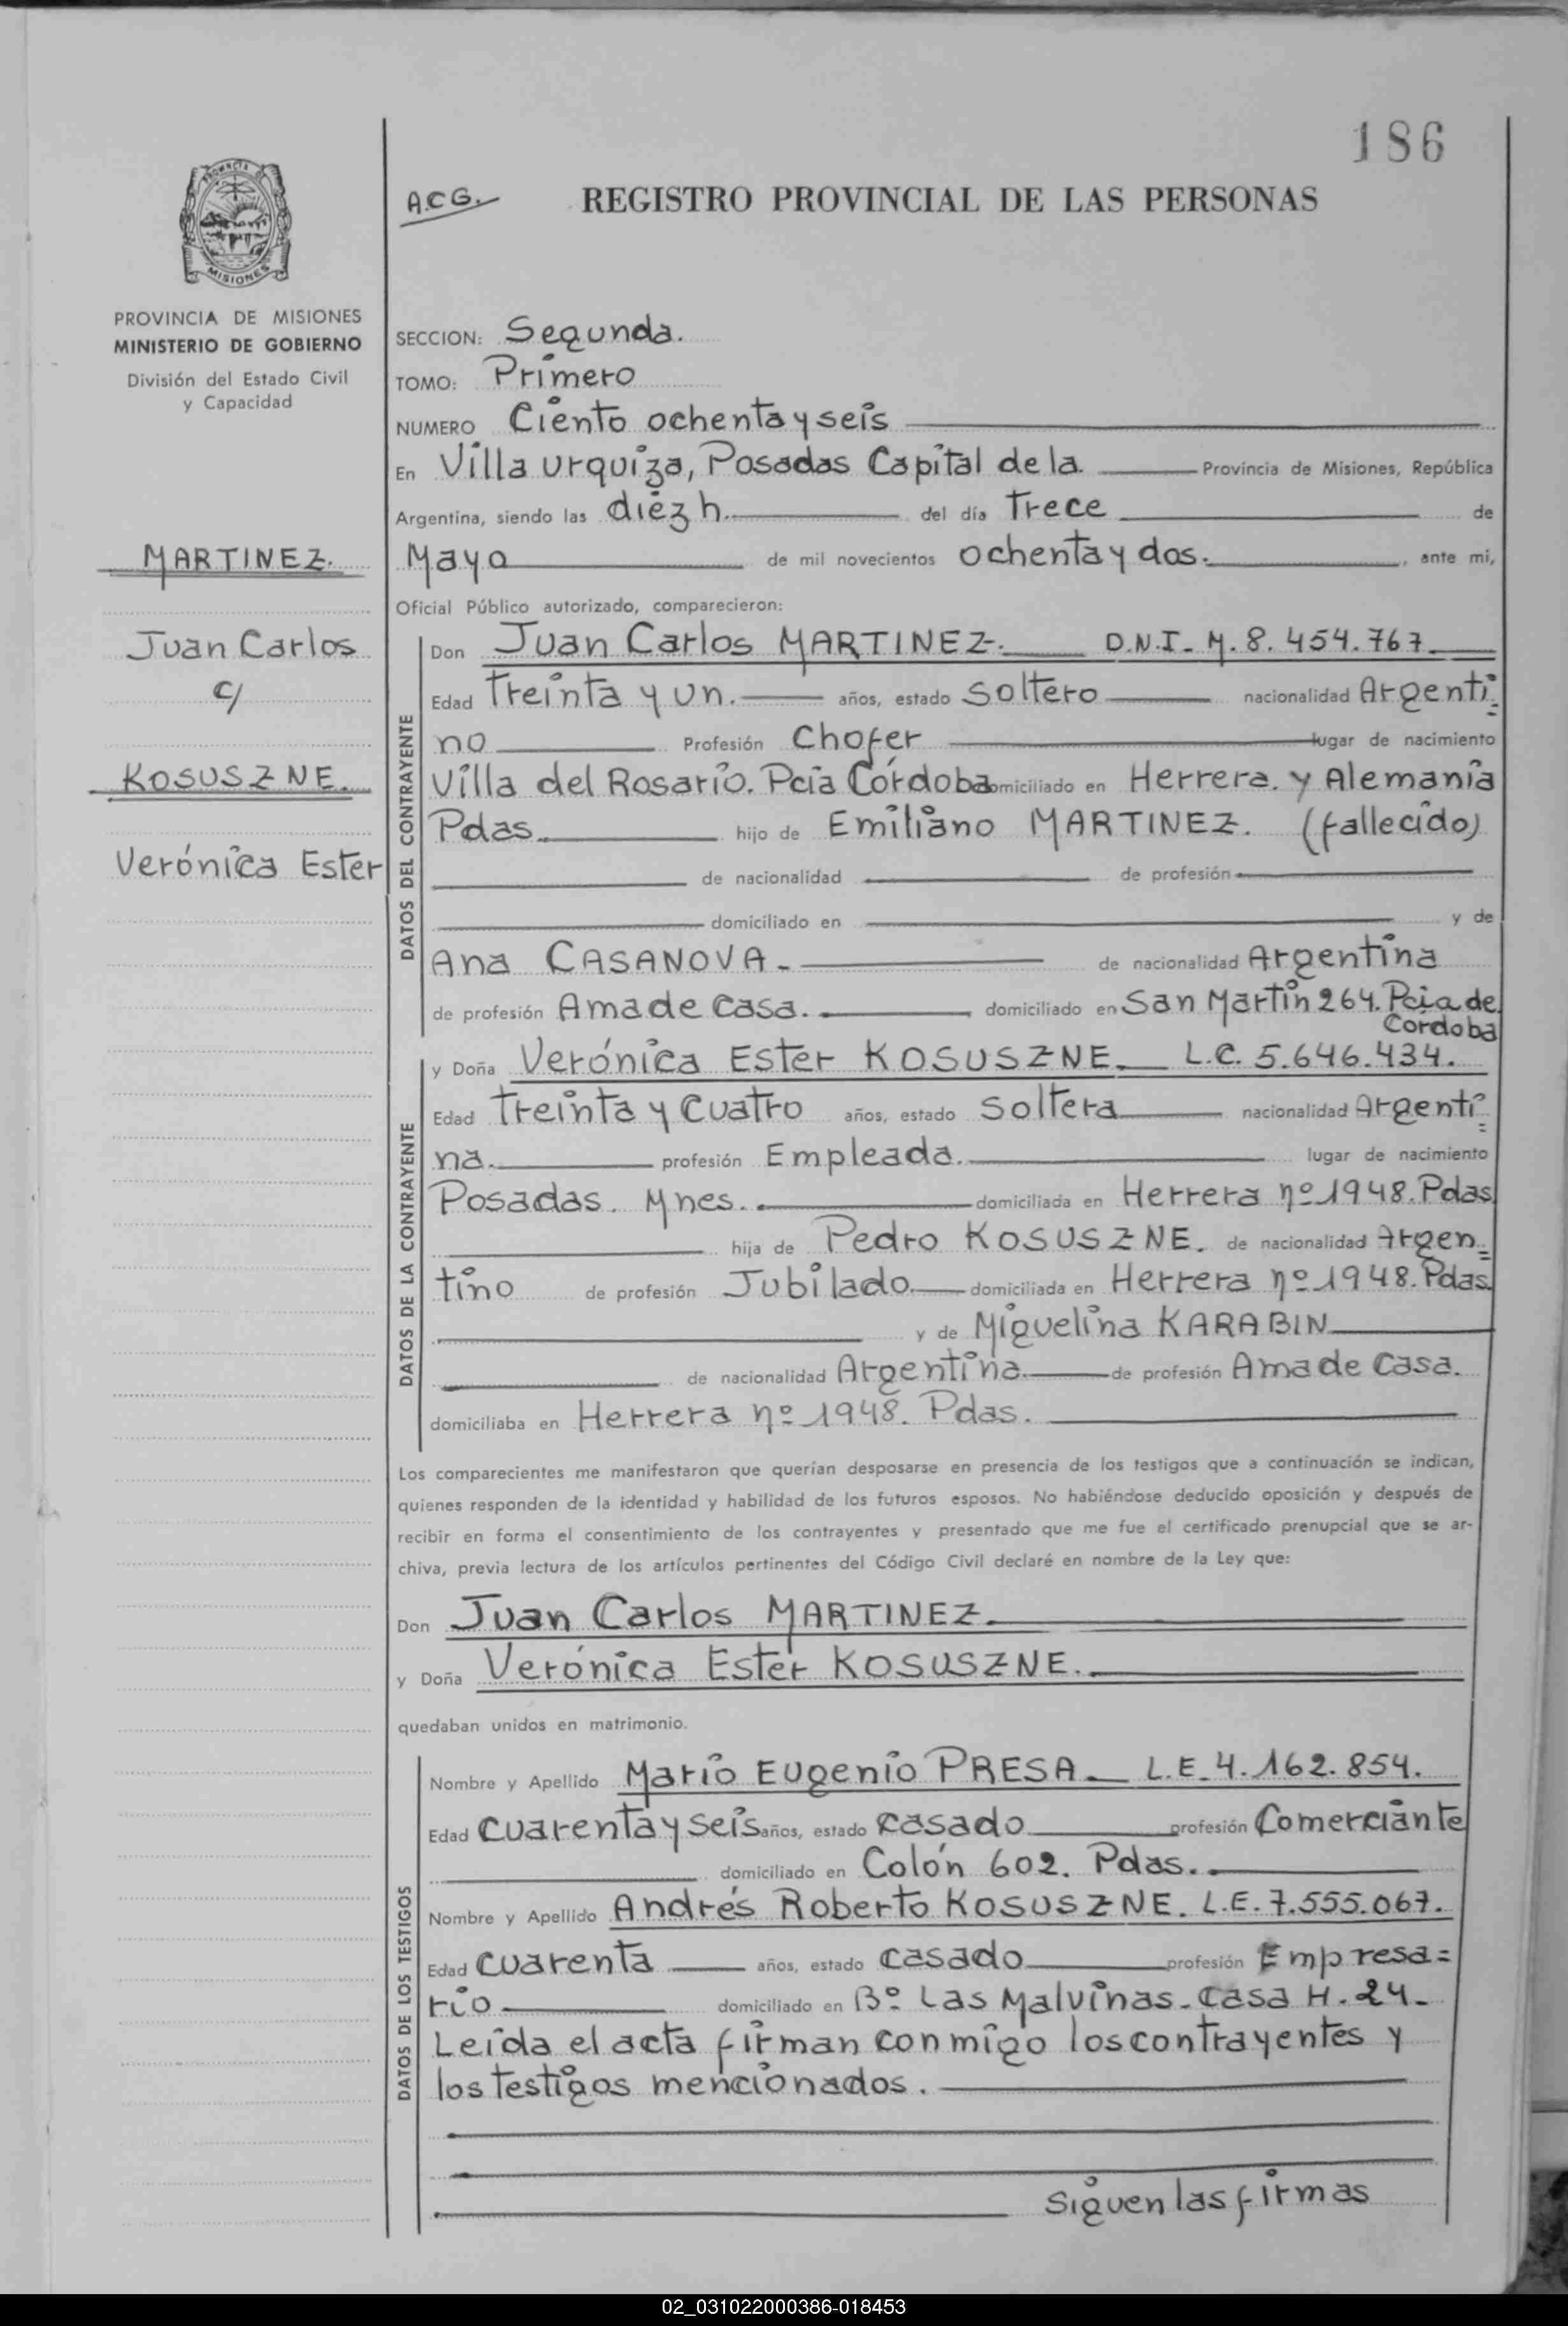 186
A.C.G.
REGISTRO PROVINCIAL DE LAS PERSONAS
PROVINCIA DE MISIONES
PROVINCIA DE MISIONES
MINISTERIO DE GOBIERNO
División del Estado Civil
y Capacidad
MARTINEZ.
Juan Carlos
c/
KOSUSZNE.
Verónica Ester
SECCION: Segunda.
TOMO: Primero
NUMERO Ciento ochenta y seis
En Villa Urquiza, Posadas Capital de la Provincia de Misiones, República
Argentina, siendo las diez h. del día Trece de
Mayo de mil novecientos ochenta y dos. , ante mi,
Oficial Público autorizado, comparecieron:
DATOS DEL CONTRAYENTE
Don Juan Carlos MARTINEZ. D.N.I. M. 8.454.767
Edad Treinta y un. años, estado Soltero nacionalidad Argenti=
no Profesión Chofer lugar de nacimiento
Villa del Rosario. Pcia Córdoba domiciliado en Herrera. y Alemania
Pdas. hijo de Emiliano MARTINEZ. (fallecido)
de nacionalidad de profesión
domiciliado en y de
Ana CASANOVA - de nacionalidad Argentina
de profesión Ama de Casa. domiciliado en San Martín 264. Pcia de
Cordoba
DATOS DE LA CONTRAYENTE
y Doña Verónica Ester KOSUSZNE. L.C. 5.646.434.
Edad Treinta y Cuatro años, estado Soltera nacionalidad Argenti=
na. profesión Empleada. lugar de nacimiento
Posadas. Mnes. domiciliada en Herrera nº 1948. Pdas
hija de Pedro KOSUSZNE. de nacionalidad Argen=
tino de profesión Jubilado domiciliada en Herrera nº 1948. Pdas.
y de Miguelina KARABIN
de nacionalidad Argentina. de profesión Ama de Casa.
domiciliaba en Herrera nº 1948. Pdas.
Los comparecientes me manifestaron que querían desposarse en presencia de los testigos que a continuación se indican,
quienes responden de la identidad y habilidad de los futuros esposos. No habiéndose deducido oposición y después de
recibir en forma el consentimiento de los contrayentes y presentado que me fue el certificado prenupcial que se ar-
chiva, previa lectura de los artículos pertinentes del Código Civil declaré en nombre de la Ley que:
Don Juan Carlos MARTINEZ.
y Doña Verónica Ester KOSUSZNE.
quedaban unidos en matrimonio.
DATOS DE LOS TESTIGOS
Nombre y Apellido Mario Eugenio PRESA. L.E. 4.162.854.
Edad Cuarenta y seis años, estado Casado profesión Comerciante
domiciliado en Colón 602. Pdas.
Nombre y Apellido Andrés Roberto KOSUSZNE. L.E. 7.555.067.
Edad Cuarenta años, estado Casado profesión Empresa=
rio domiciliado en Bº Las Malvinas. Casa H. 24.
Leída el acta firman conmigo los contrayentes y
los testigos mencionados.
Siguen las firmas
02_031022000386-018453